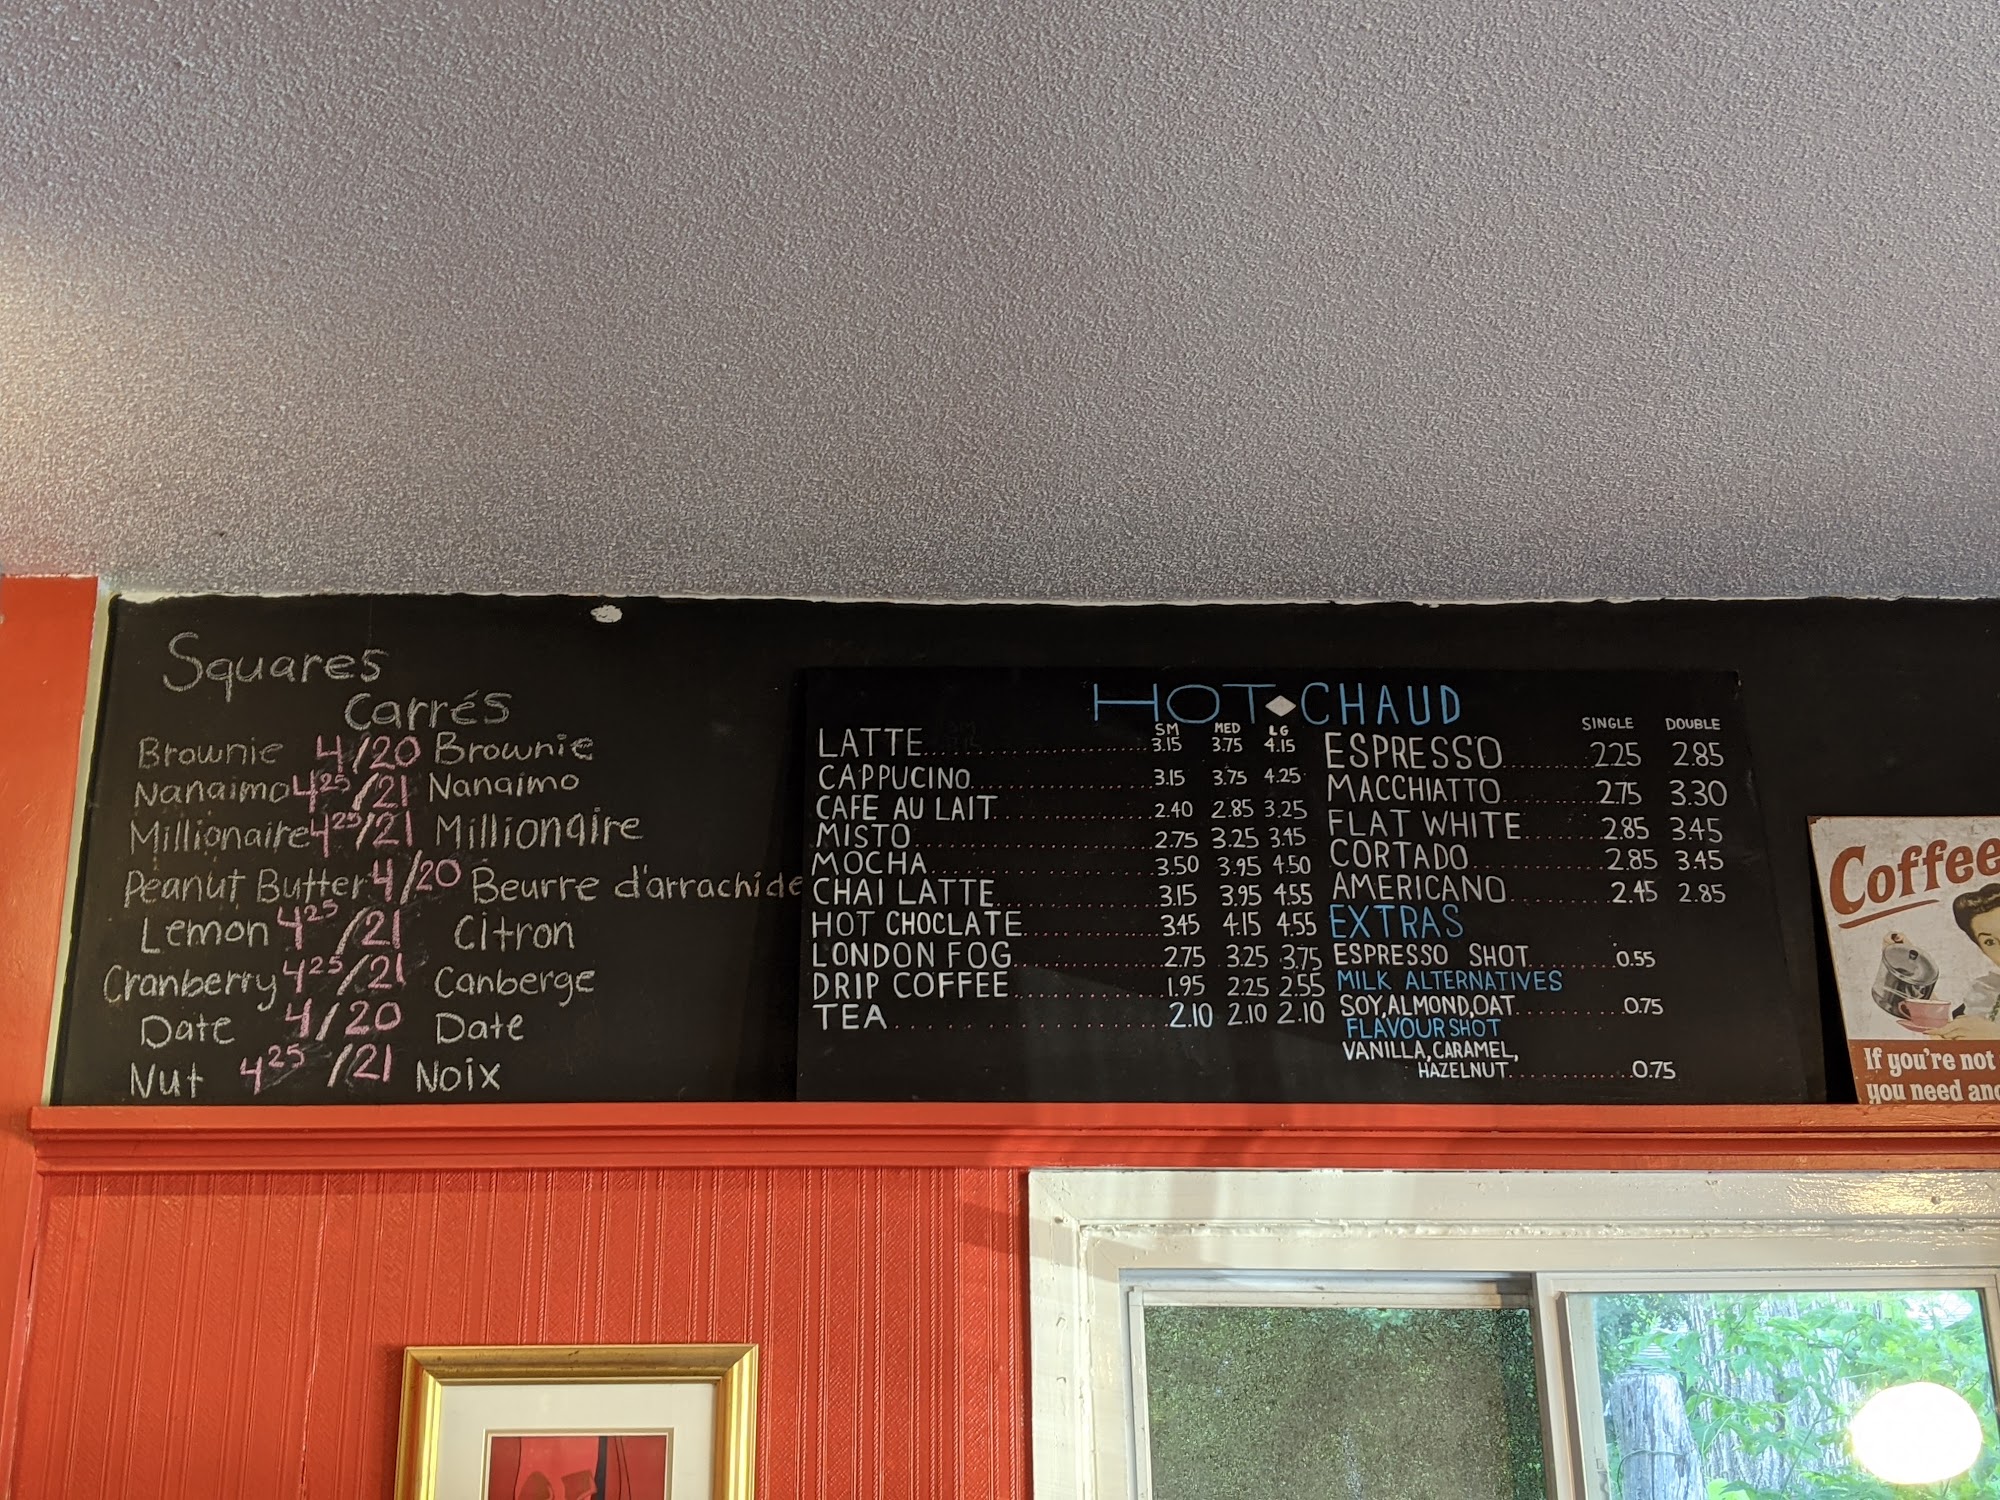 Squares
Carrés
Brownie 4/20 Brownie
Nanaimo 4.25/21 Nanaimo
Millionaire 4.25/21 Millionaire
Peanut Butter 4/20 Beurre d'arrachide
Lemon 4.25/21 Citron
Cranberry 4.25/21 Canberge
Date 4/20 Date
Nut 4.25/21 Noix
HOT CHAUD
SM MED LG
LATTE 3.15 3.75 4.15
CAPPUCINO 3.15 3.75 4.25
CAFE AU LAIT 2.40 2.85 3.25
MISTO 2.75 3.25 3.45
MOCHA 3.50 3.95 4.50
CHAI LATTE 3.15 3.95 4.55
HOT CHOCLATE 3.45 4.15 4.55
LONDON FOG 2.75 3.25 3.75
DRIP COFFEE 1.95 2.25 2.55
TEA 2.10 2.10 2.10
SINGLE DOUBLE
ESPRESSO 2.25 2.85
MACCHIATTO 2.75 3.30
FLAT WHITE 2.85 3.45
CORTADO 2.85 3.45
AMERICANO 2.45 2.85
EXTRAS
ESPRESSO SHOT 0.55
MILK ALTERNATIVES
SOY, ALMOND, OAT 0.75
FLAVOUR SHOT
VANILLA, CARAMEL,
HAZELNUT 0.75
Coffee
If you're not
you need